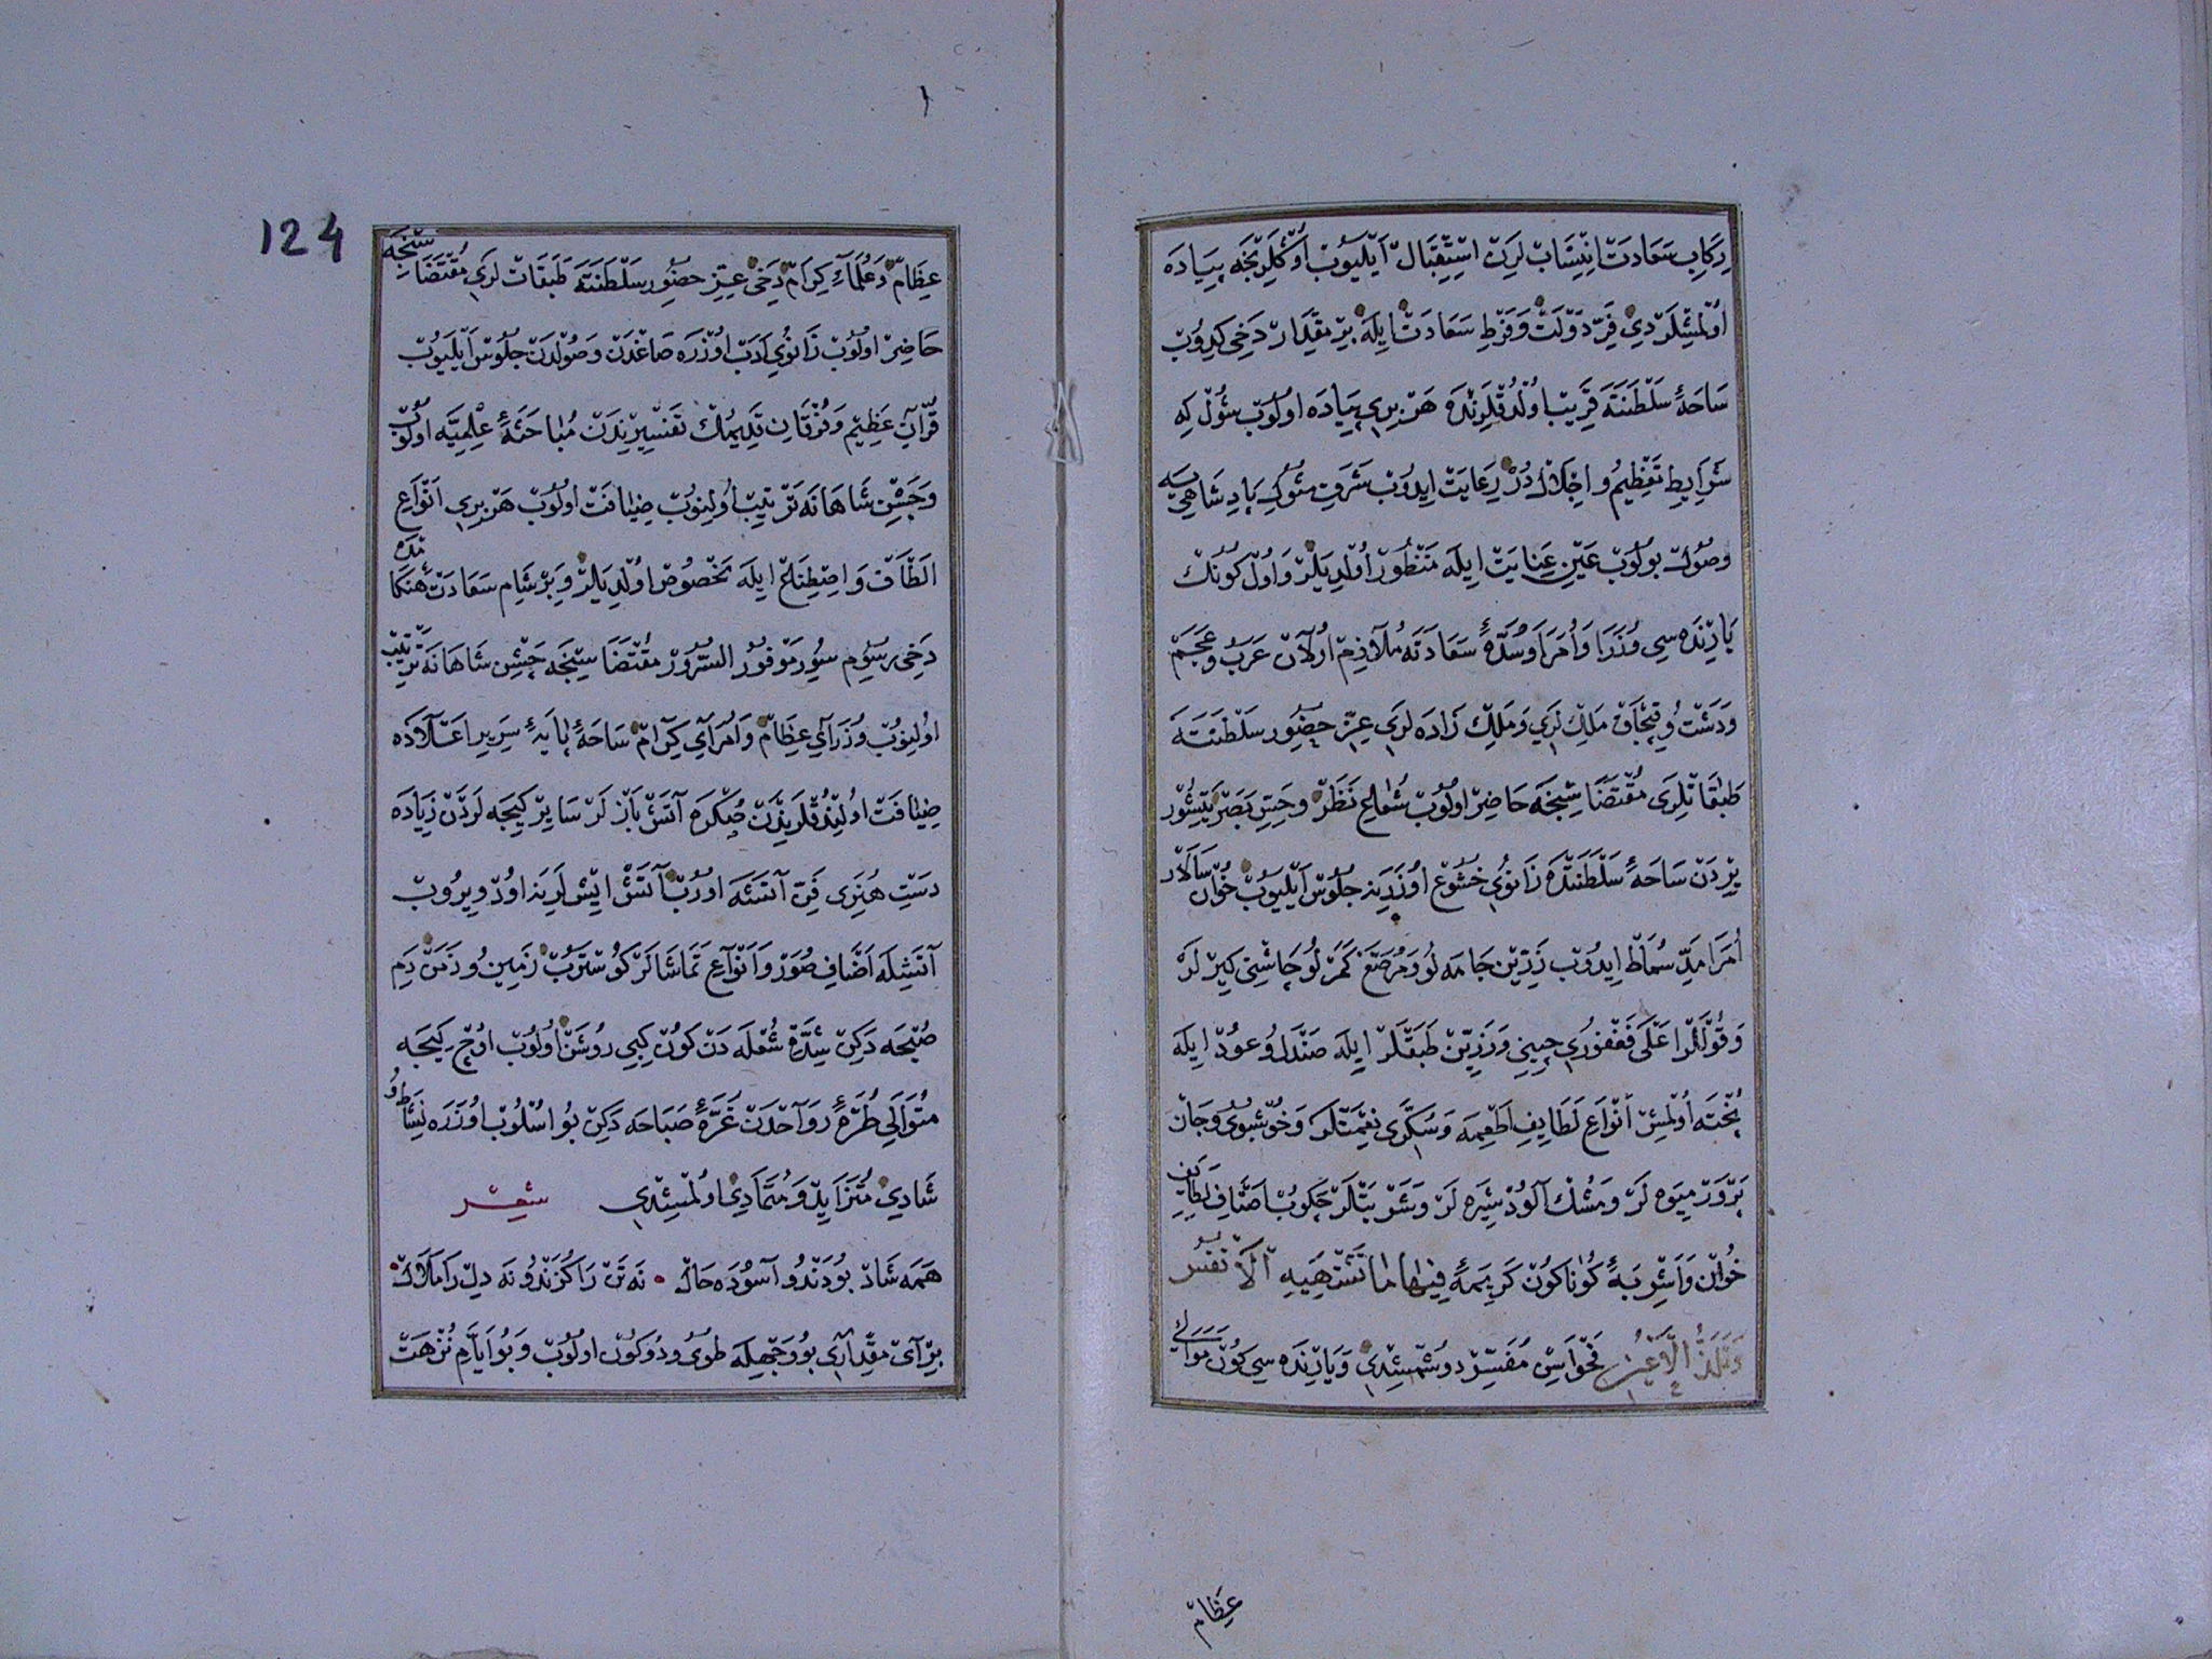 رِكَابِ سَعَادَتْ اِنْتِسَابْ لَرِنْ اِسْتِقْبَالْ اَيْلَيُوبْ اُوكْلَرِنْجَه پِيَادَه
اُولْمِشْلَرْدِي فَرِّ دَوْلَتْ وَفَرْطِ سَعَادَتْ اِيلَه بِرْ مِقْدَارْ دَخِي كِيدُوبْ
سَاحَۀِ سَلْطَنَتَه قَرِيبْ اُولْدُقْلَرِنْدَه هَرْ بِرِي پِيَادَه اولُوبْ شُولْ كِه
شَرَايِطِ تَعْظِيمُ و اِجْلَالْدُرْ رِعَايَتْ اِيدُوبْ شَرَفِ مُثُولِ پَادِشَاهِي يَه
وصُولْ بولُوبْ عَيْنِ عِنَايَتْ اِيلَه مَنْظُورْ اُولْدِيلَرْ وَاوُلْ كُونُكْ
يَارِنْدَه سِي وُزَرَا وَاُمَرَا وَسُدَّۀِ سَعَادَتَه مُلَازِمْ اُولَانْ عَرَبْ وعَجَمْ
وَدَشْتْ وُ قِپْچَاقْ مَلِكْ لَرِي وَمَلِكْ زَادَه لَرِي عِزِّ حضُورِ سَلْطَنَتَه
طَبَقَاتْلَرِي مُقْتَضَاسِنْجَه حَاضِرْ اولُوبْ شُعَاعِ نَظَرْ وحِسِّ بَصَرْ يَتِشُورْ
يِرْدَنْ سَاحَۀِ سَلْطَنَتْدَه زَانوُيِ خُشُوعْ اوُزَرِينَه جلُوسْ اَيْلَيُوبْ خَوَانْ سَالَارْ
اُمَرَا مَدِّ سُمَاطْ اِيدُوبْ زَرِّينْ جَامَه لُو وَمُرَصَّعْ كَمَرْ لُو چَاشْنِي كِيرْ لَرْ
وَقُوللَّرْ اَعْلَى فَغْفوُرِي چِينِي وَزَرِّينْ طَبَقْلَرْ اِيلَه صَنْدَلُ وُ عوُدْ اِيلَه
پُخْتَه اُولْمِشْ اَنْوَاعِ لَطَايِفِ اَطْعِمَه وَسُكَّرِي نِعْمَتْلَرْ وَخُوشْبُويْ وجَانْ
پَرْوَرْ مِيوَه لَرْ وَمُشْكْ آلُودْ شِيرَه لَرْ وَشَرْبَتْلَرْ چَكُوبْ اَصْنَافِ لَطَايِفِ
خُوَانْ وَاَشْرِبَۀِ كُونَاكُونْ كَرِيمَۀِ فِيهَا مَا تَشْتَهِيهِ الْاَنْفُسُ
وَتَلَذُّ الْاَعْيُنُ فَحْوَاسِنْ مُفَسِّرْ دوشْمِشْدِي وَيَارِنْدَه سِي كُونْ مَوَالِي
عِظَامْ
124
عِظَامْ وَعُلَمَاءِ كِرَامْ دَخِي عِزِّ حضُورِ سَلْطَنَتَه طَبَقَاتْ لَرِي مُقْتَضَاسِنْجَه
حَاضِرْ اولُوبْ زَانُويِ اَدَبْ اوُزْرَه صَاغْدَنْ وَصُولْدَنْ جلُوسْ اَيْلَيُوبْ
قُرْآنِ عَظِيمِ وَفُرْقَانِ قَدِيمُكْ تَفْسِيرِنْدَنْ مُبَاحَثَۀِ عِلْمِيَّه اولُوبْ
وَجَشْنِ شَاهَانَه تَرْتِيبْ اوُلِنُوبْ ضِيَافَتْ اولُوبْ هَرْ بِرِي اَنْوَاعِ
اَلْطَافْ وَاصْطِنَاعْ اِيلَه مَخْصُوصْ اوُلْدِيلَرْ وَبَرْ شَامِ سَعَادَتْ هَنكَامْدَه
دَخِي رسُومِ سُورِ مَوْفوُرْ السُّرُورْ مُقْتَضَاسِنْجَه جَشْنِ شَاهَانَه تَرْتِيبْ
اوُلِنُوبْ وُزَرَآيِ عِظَامْ وَاُمَرَآيِ كِرَامْ سَاحَۀِ پَايَۀِ سَرِيرِ اَعْلَادَه
ضِيَافَتْ اوُلِنْدُقْلَرِنْدَنْ صُكْرَه آتَشْ بَازْ لَرْ سَايِرْ كِيجَه لَرْدَنْ زِيَادَه
دَسْتِ هُنَرِي فَنِّ آتَشَه اوُرُبْ آتَشْ اِيشْ لَرِينَه اوُدْ وِيرُوبْ
آتَشِلَه اَصْنَافِ صُوَرْ وَاَنْوَاعِ تَمَاشَالَرْ كُوسْتَرُبْ زَمِينُ و زَمَنْ دَمِ
صُبْحَه دَكِنْ شِدَّتِ شُعْلَه دَنْ كُونْ كِبِي رُوشَنْ اُولُوبْ اوُچْ كِيجَه
مُتَوَالِي طُرَّۀِ رَوَاحْدَنْ غُرَّۀِ صَبَاحَه دَكِنْ بُو اُسْلُوبْ اوُزَرَه نَشَاطُ وُ
شَادِي مُتَزَايِدْ وَمُتَمَادِي اوُلْمِشْدِي شعر
هَمَه شَادْ بُودَنْدُ و آسُودَه حَالْ • نَه تَنْ رَا كَزَنْدُ و نَه دِلْ رَا مَلَالْ
بِرْ آيْ مِقْدَارِي بُو وَجْهِلَه طُويْ و دُوكُونْ اولُوبْ وَبُو اَيَّامِ نُزْهَتْ